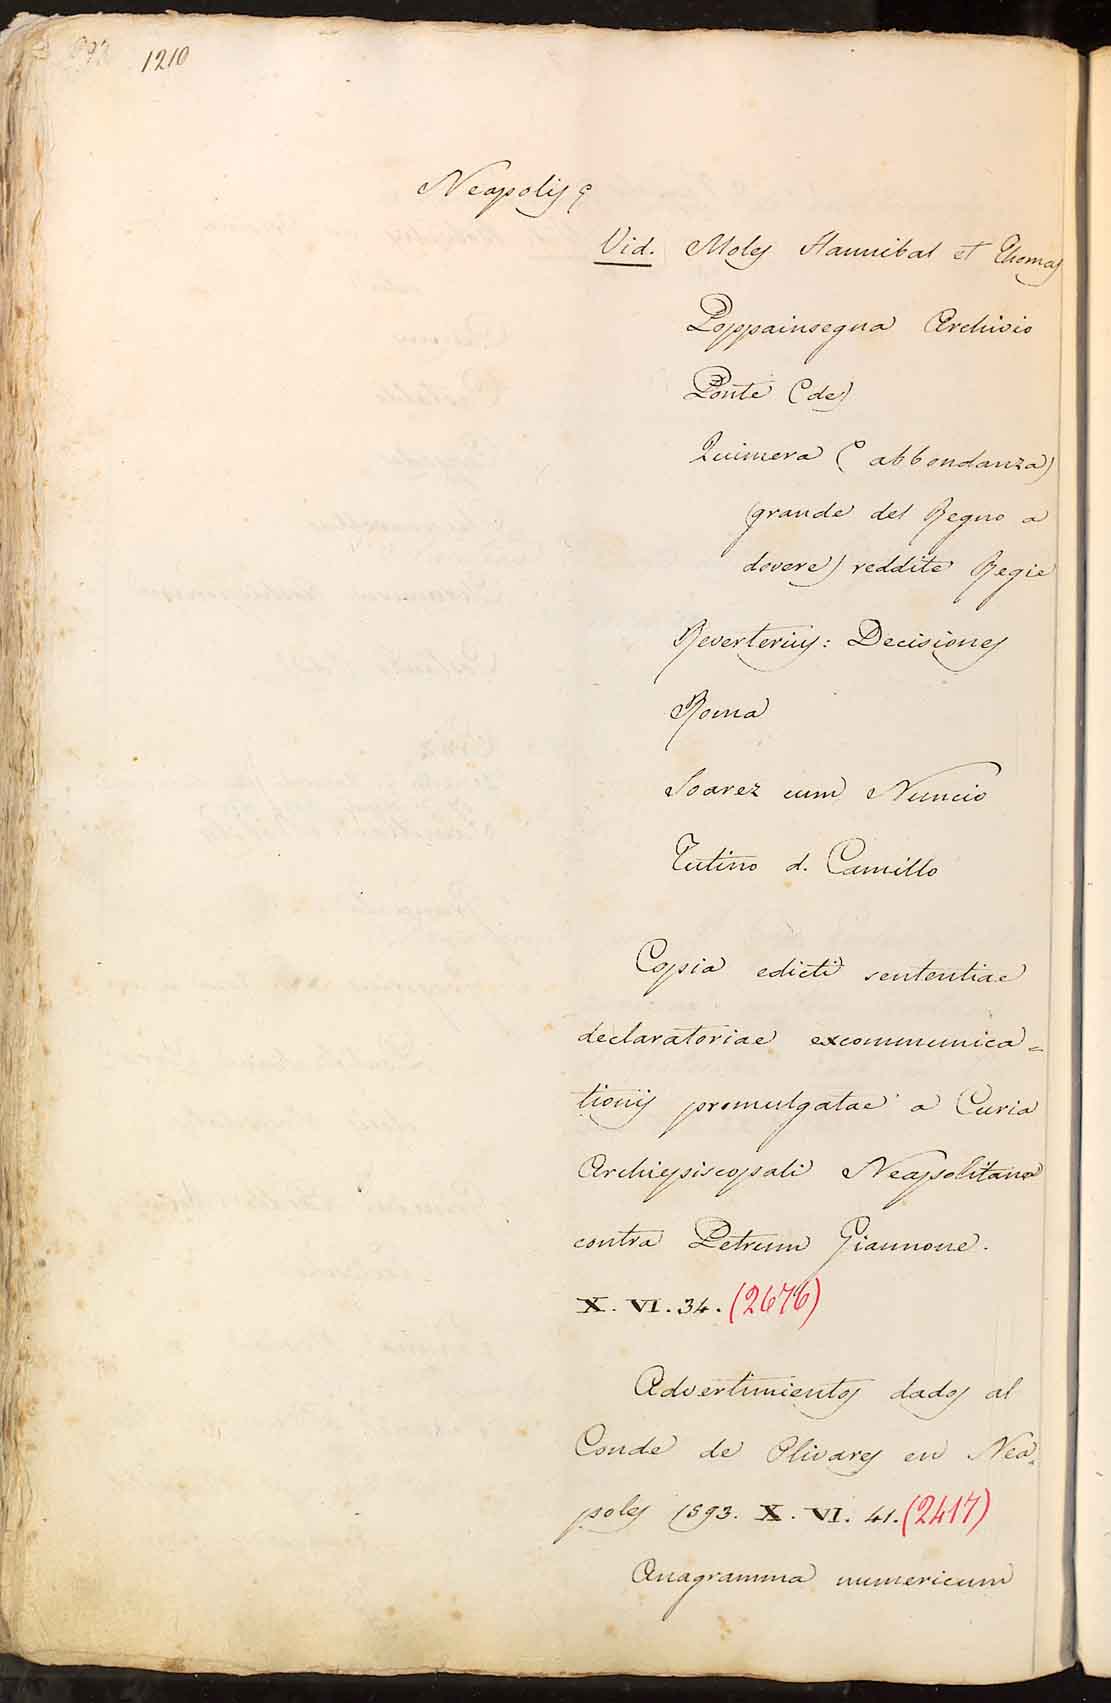 1210
Neapolis
Vid. Moles Hannibal et Thomas
Poppainsegna Archivio
Ponte (de)
Quimera ( abbondanza)
grande del Regno a
dovere) reddite Regie
Reverterius: Decisiones
Roma
Soarez cum Nuncio
Tutino d. Camillo
Copia edicti sententiae
declaratoriae excommunica=
tionis promulgatae a Curia
Archiepiscopali Neapolitana
contra Petrum Giannone.
X. VI. 34. (2676)
Advertimientos dados al
Conde de Olivares en Nea=
poles 1593. X. VI. 41. (2417)
Anagramma numericum